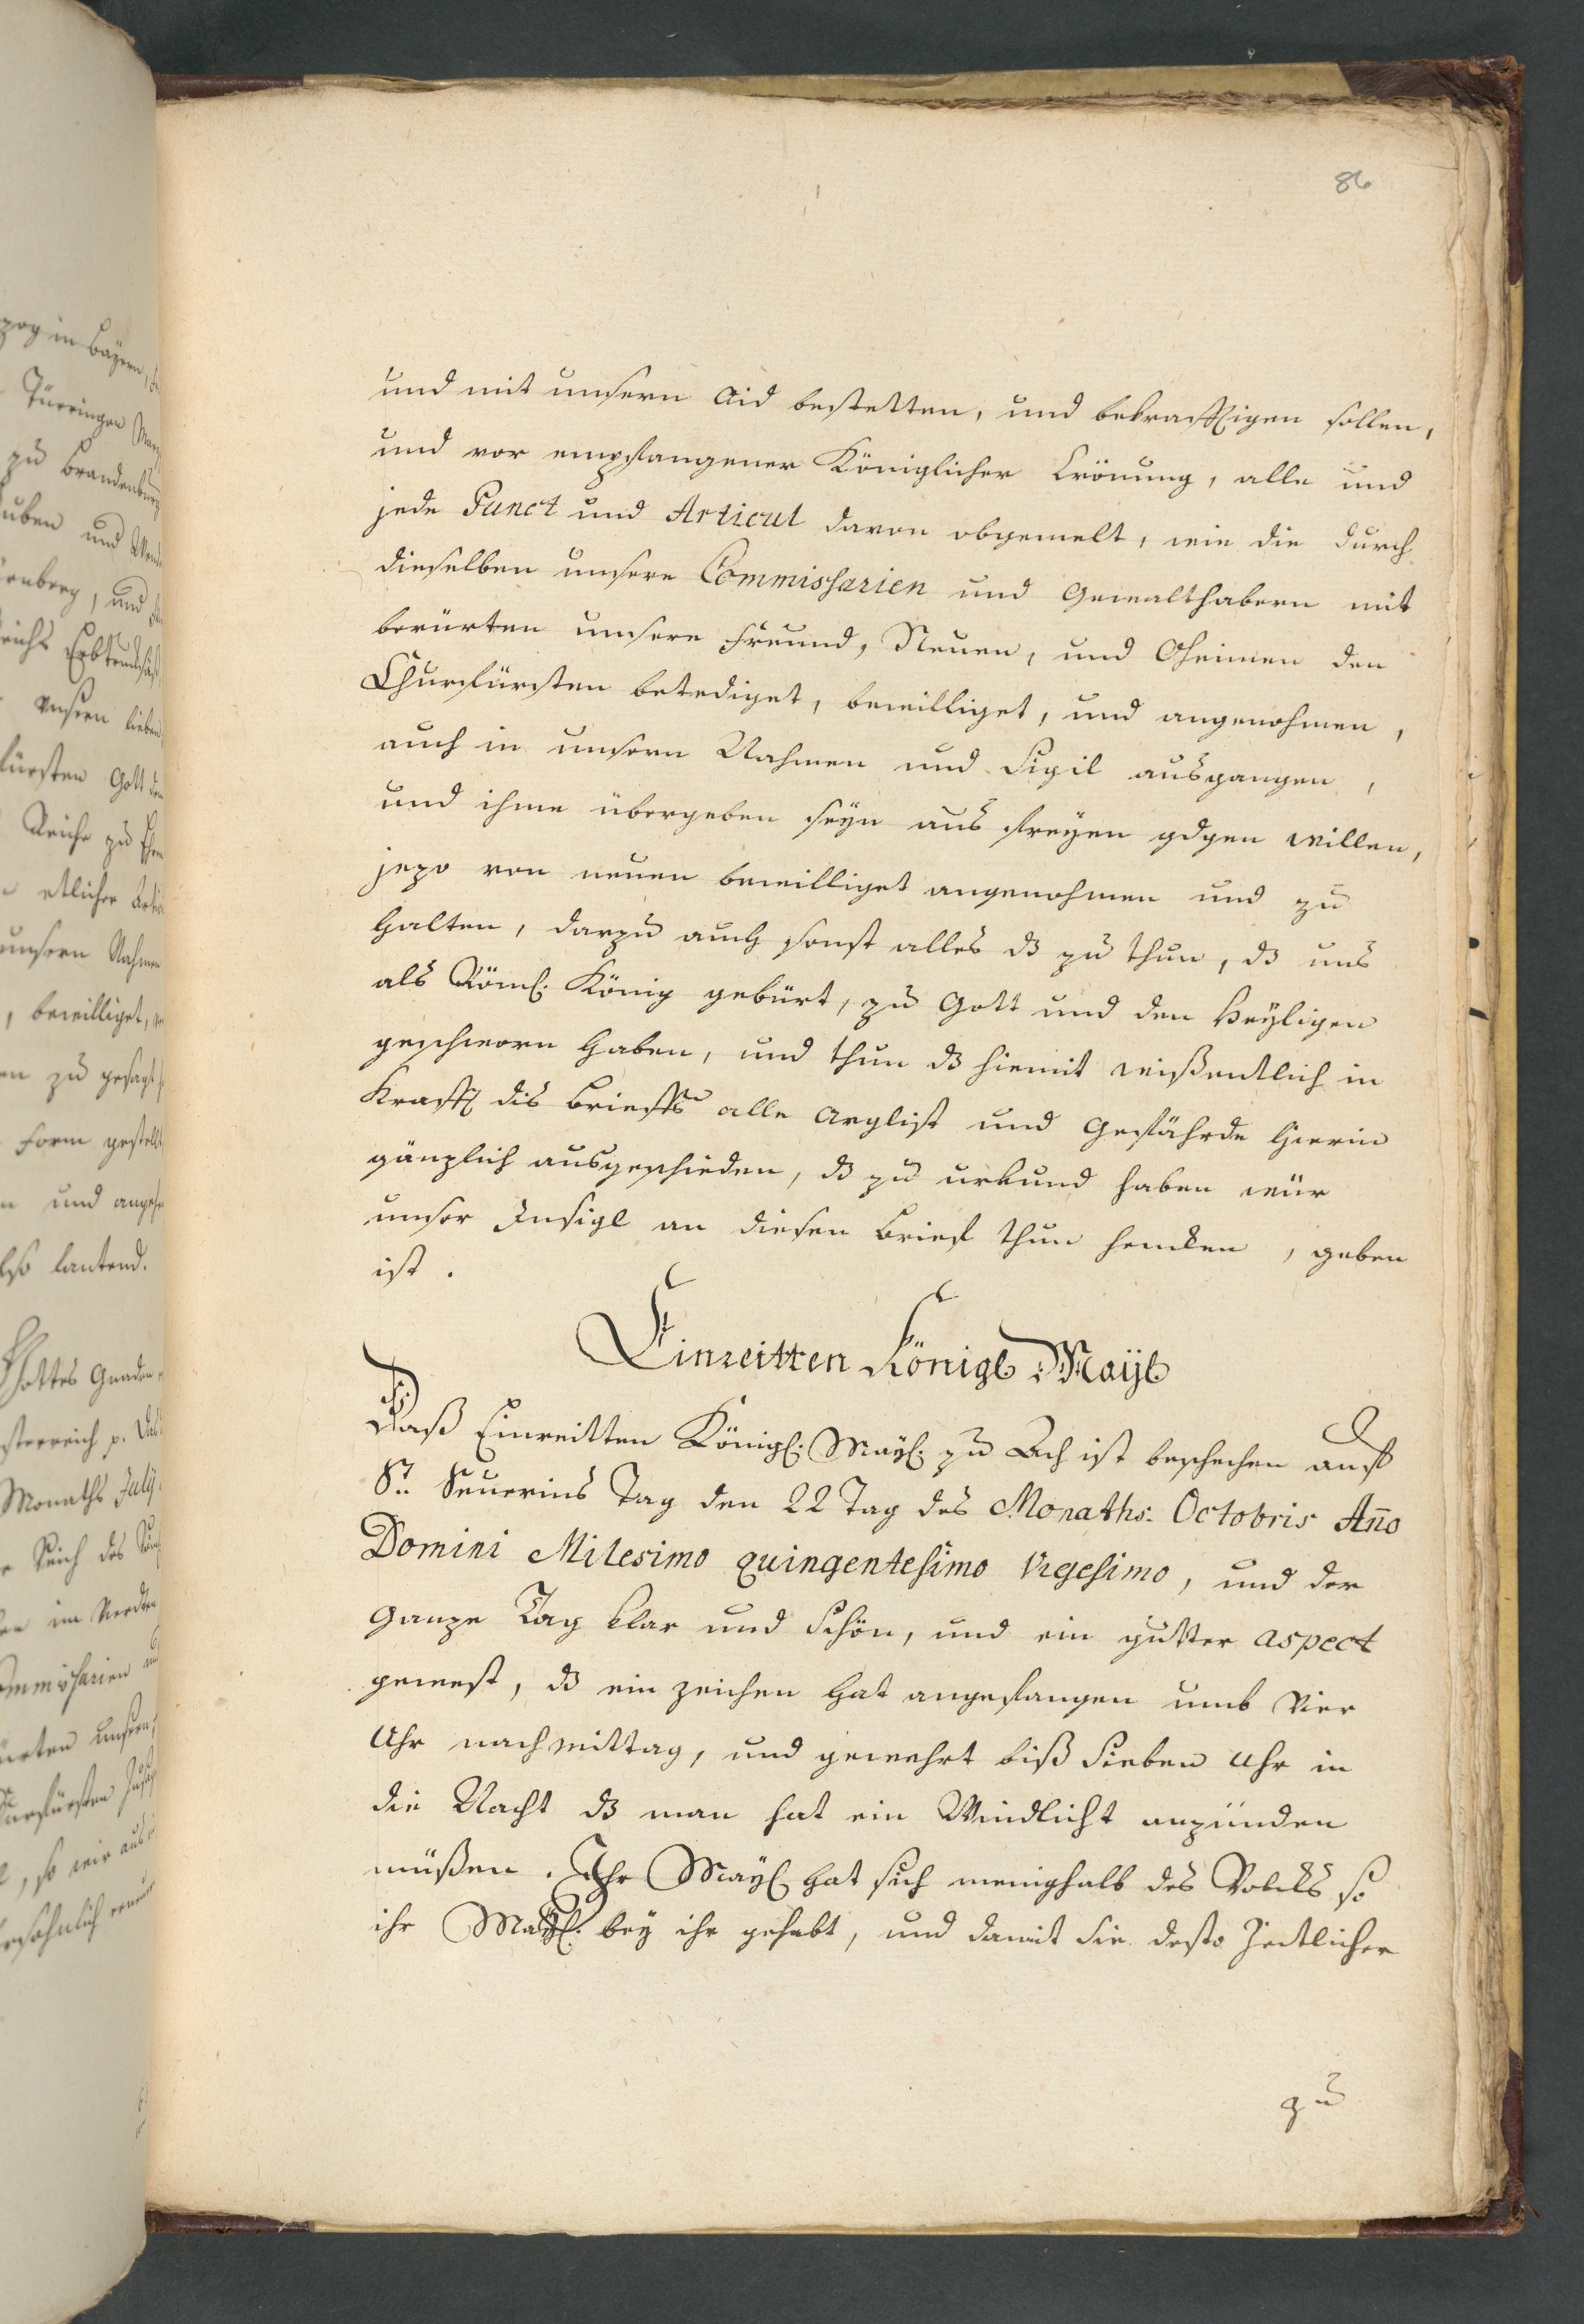 86
und mit unsern Aid bestetten, und bekrafftigen sollen,
und vor empfangener Königlicher Crönung, alle und
jede Punct und Articul davon obgemelt, wie die durch
dieselben unsere Commissarien und Gewalthabern mit
berürten unsere Freund, Neuen, und Oheimen den
Churfürsten betediget, bewilliget, und angenohmen,
auch in unsern Nahmen und Sigil ausgangen,
und ihme übergeben seyn aus freyen willen,
jezo von neuen bewilliget angenohmen und zu
halten, darzu auch sonst alles dz zu thun, dz uns
als Röml: König gebürt, zu Gott und den Heyligen
geschworn haben, und thun dz hiemit wißentlich in
Krafft dis Brieffs alle Arglist und Gefährde hierin
gänzlich ausgeschieden, dz zu urkund haben wür
unser Insigl an diesen Brief thun hencken, geben
ist.
Einreitten Königl: Mayl
Daß Einreitten Königl: Mayl: zu Ach ist beschechen auff
St: Seuerins Tag den 22 Tag des Monaths: Octobris Año
Domini Milesimo quingentesimo Vigesimo, und der
ganze Tag klar und schön, und ein gutter aspect
gewest, dz ein zeichen hat angefangen umb Vier
Uhr nachmittag, und gewehrt biß Sieben Uhr in
die Nacht dz man hat ein Windlicht anzünden
müßen. Ihr Mayl hat sich wenighalb des Volcks so
ihr Mayl: bey ihr gehabt, und damit sie desto Zeitlicher
zu